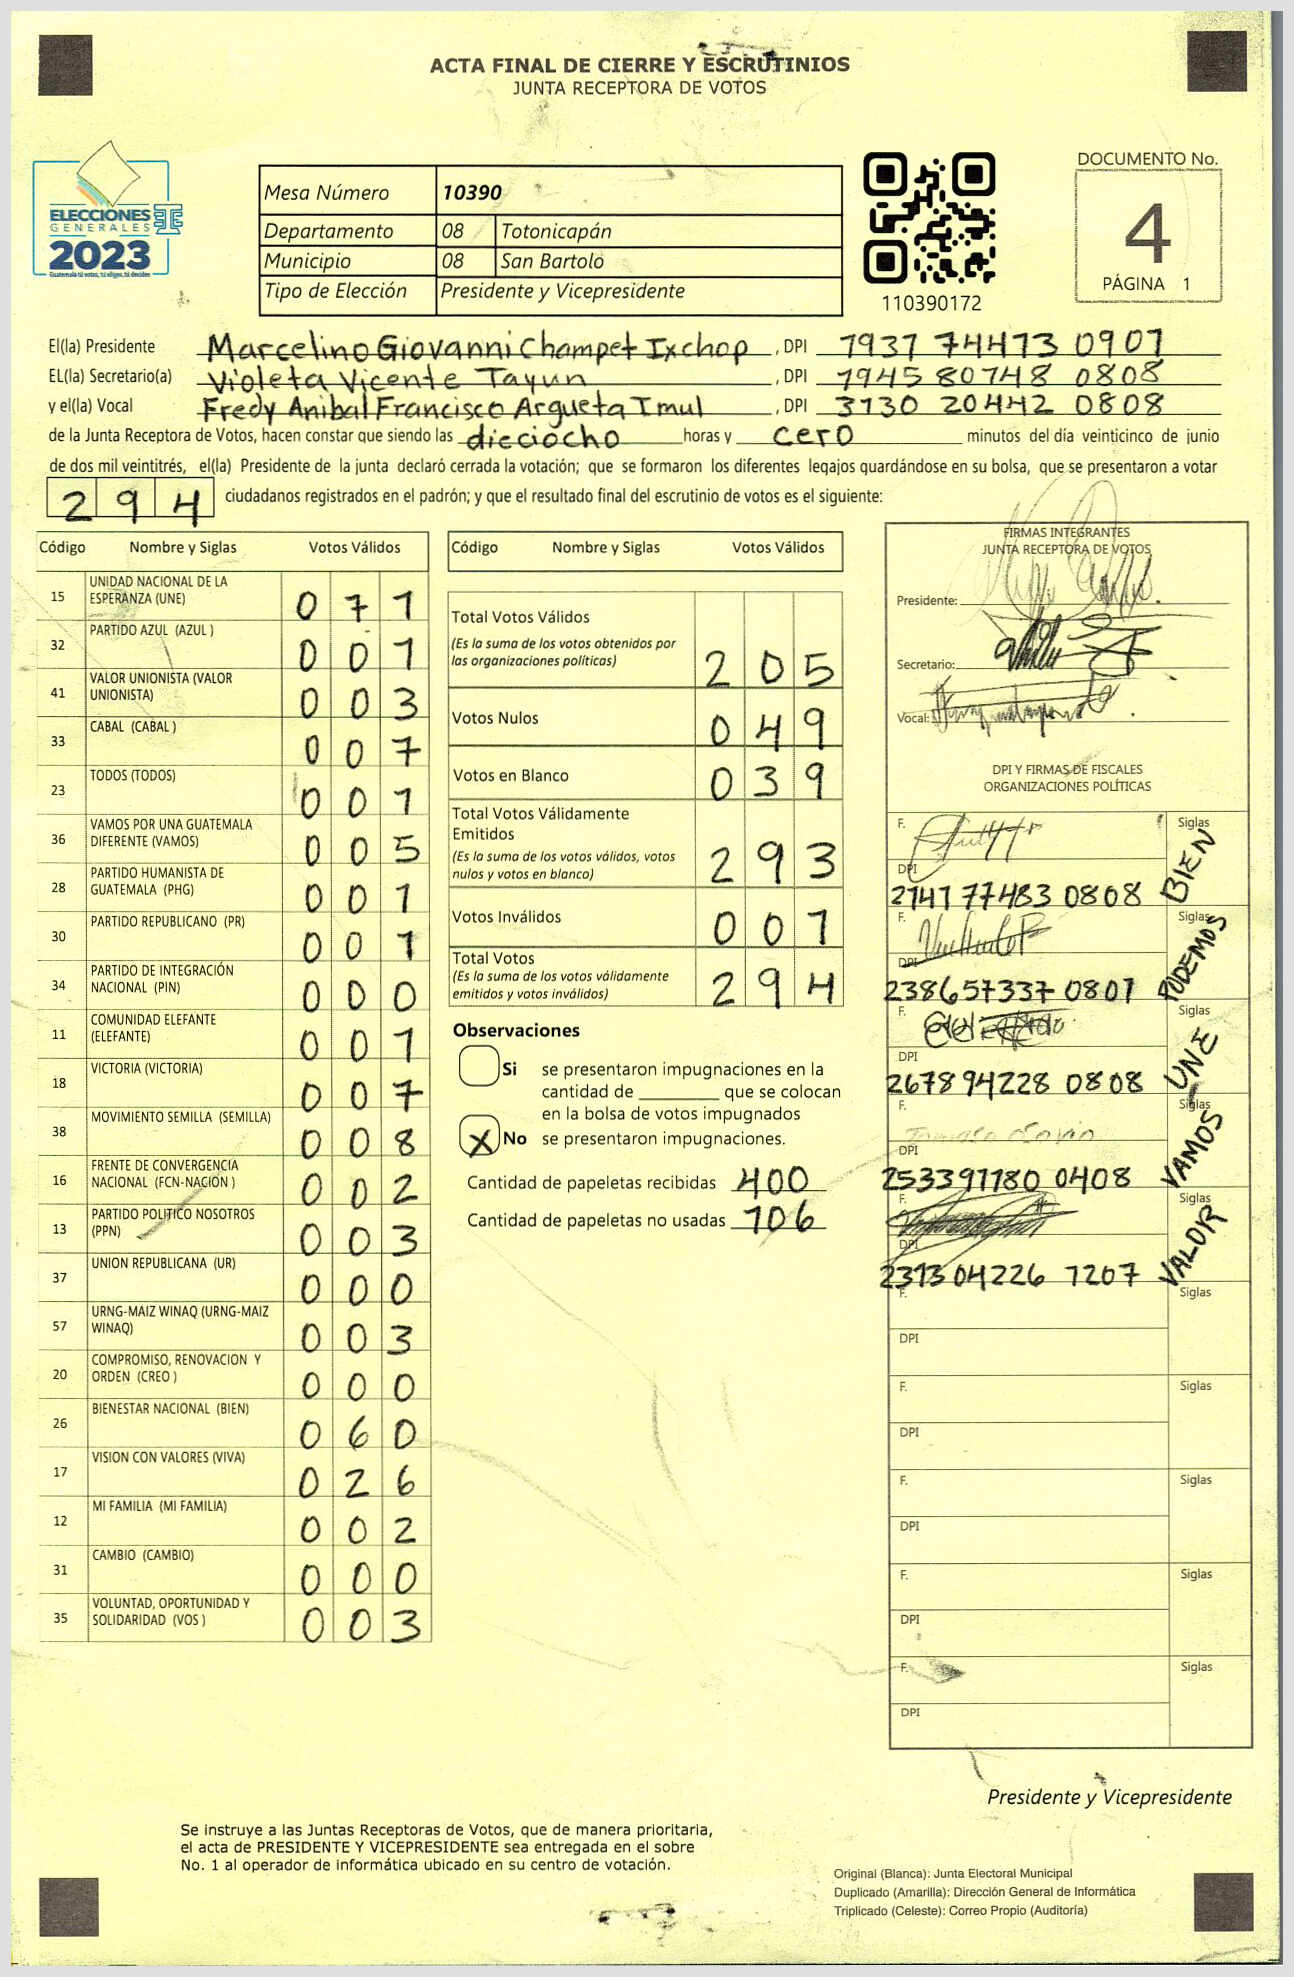 ACTA FINAL DE CIERRE Y ESCRUTINIOS
JUNTA RECEPTORA DE VOTOS
ELECCIONES
GENERALES
2023
Guatemala tú votas, tú eliges, tú decides
Mesa Número 10390
Departamento 08 Totonicapán
Municipio 08 San Bartolo
Tipo de Elección Presidente y Vicepresidente
110390172
DOCUMENTO No.
4
PÁGINA 1
El(la) Presidente Marcelino Giovanni Champet Ixchop , DPI 1931 14413 0901
EL(la) Secretario(a) Violeta Vicente Tayun , DPI 1945 80148 0808
y el(la) Vocal Fredy Anibal Francisco Argueta Imul , DPI 3130 20442 0808
de la Junta Receptora de Votos, hacen constar que siendo las dieciocho horas y cero minutos del día veinticinco de junio
de dos mil veintitrés, el(la) Presidente de la junta declaró cerrada la votación; que se formaron los diferentes legajos quardándose en su bolsa, que se presentaron a votar
294 ciudadanos registrados en el padrón; y que el resultado final del escrutinio de votos es el siguiente:
Código Nombre y Siglas Votos Válidos
15 UNIDAD NACIONAL DE LA ESPERANZA (UNE) 071
32 PARTIDO AZUL (AZUL ) 001
41 VALOR UNIONISTA (VALOR UNIONISTA) 003
33 CABAL (CABAL ) 007
23 TODOS (TODOS) 001
36 VAMOS POR UNA GUATEMALA DIFERENTE (VAMOS) 005
28 PARTIDO HUMANISTA DE GUATEMALA (PHG) 001
30 PARTIDO REPUBLICANO (PR) 001
34 PARTIDO DE INTEGRACIÓN NACIONAL (PIN) 000
11 COMUNIDAD ELEFANTE (ELEFANTE) 001
18 VICTORIA (VICTORIA) 007
38 MOVIMIENTO SEMILLA (SEMILLA) 008
16 FRENTE DE CONVERGENCIA NACIONAL (FCN-NACION ) 002
13 PARTIDO POLITICO NOSOTROS (PPN) 003
37 UNION REPUBLICANA (UR) 000
57 URNG-MAIZ WINAQ (URNG-MAIZ WINAQ) 003
20 COMPROMISO, RENOVACION Y ORDEN (CREO ) 000
26 BIENESTAR NACIONAL (BIEN) 060
17 VISION CON VALORES (VIVA) 026
12 MI FAMILIA (MI FAMILIA) 002
31 CAMBIO (CAMBIO) 000
35 VOLUNTAD, OPORTUNIDAD Y SOLIDARIDAD (VOS ) 003
Código Nombre y Siglas Votos Válidos
Total Votos Válidos
(Es la suma de los votos obtenidos por
las organizaciones políticas) 205
Votos Nulos 049
Votos en Blanco 039
Total Votos Válidamente
Emitidos
(Es la suma de los votos válidos, votos
nulos y votos en blanco) 293
Votos Inválidos 001
Total Votos
(Es la suma de los votos válidamente
emitidos y votos inválidos) 294
Observaciones
Si se presentaron impugnaciones en la
cantidad de ________ que se colocan
en la bolsa de votos impugnados
X No se presentaron impugnaciones.
Cantidad de papeletas recibidas 400
Cantidad de papeletas no usadas 106
FIRMAS INTEGRANTES
JUNTA RECEPTORA DE VOTOS
Presidente:
Secretario:
Vocal:
DPI Y FIRMAS DE FISCALES
ORGANIZACIONES POLÍTICAS
F. Siglas BIEN
DPI
2141 77483 0808
F. Siglas PODEMOS
DPI
238657337 0801
F. Siglas UNE
DPI
2678 94228 0808
F. Siglas VAMOS
DPI
253391180 0408
F. Siglas VALOR
DPI
2313 04226 1207
F. Siglas
DPI
F. Siglas
DPI
F. Siglas
DPI
F. Siglas
DPI
F. Siglas
DPI
Presidente y Vicepresidente
Se instruye a las Juntas Receptoras de Votos, que de manera prioritaria,
el acta de PRESIDENTE Y VICEPRESIDENTE sea entregada en el sobre
No. 1 al operador de informática ubicado en su centro de votación.
Original (Blanca): Junta Electoral Municipal
Duplicado (Amarilla): Dirección General de Informática
Triplicado (Celeste): Correo Propio (Auditoría)